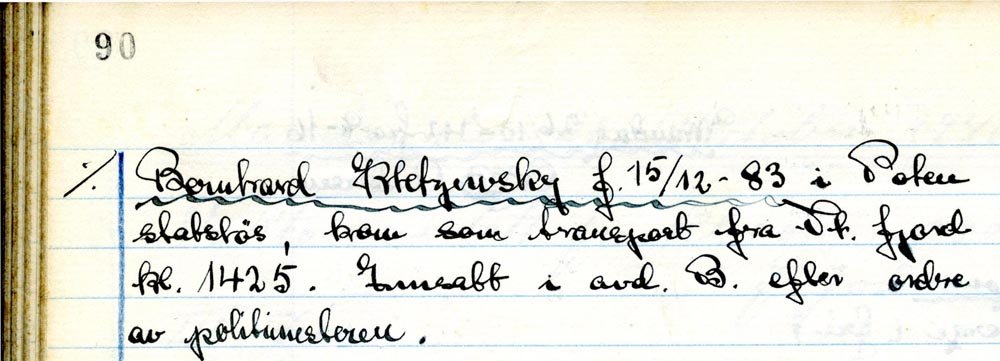 90
·/. Bernhard Kletzewsky f. 15/12 - 83 i Polen
statsløs, kom som transport fra St. fjord
kl. 1425. Innsatt i avd. B. efter ordre
av politimesteren.